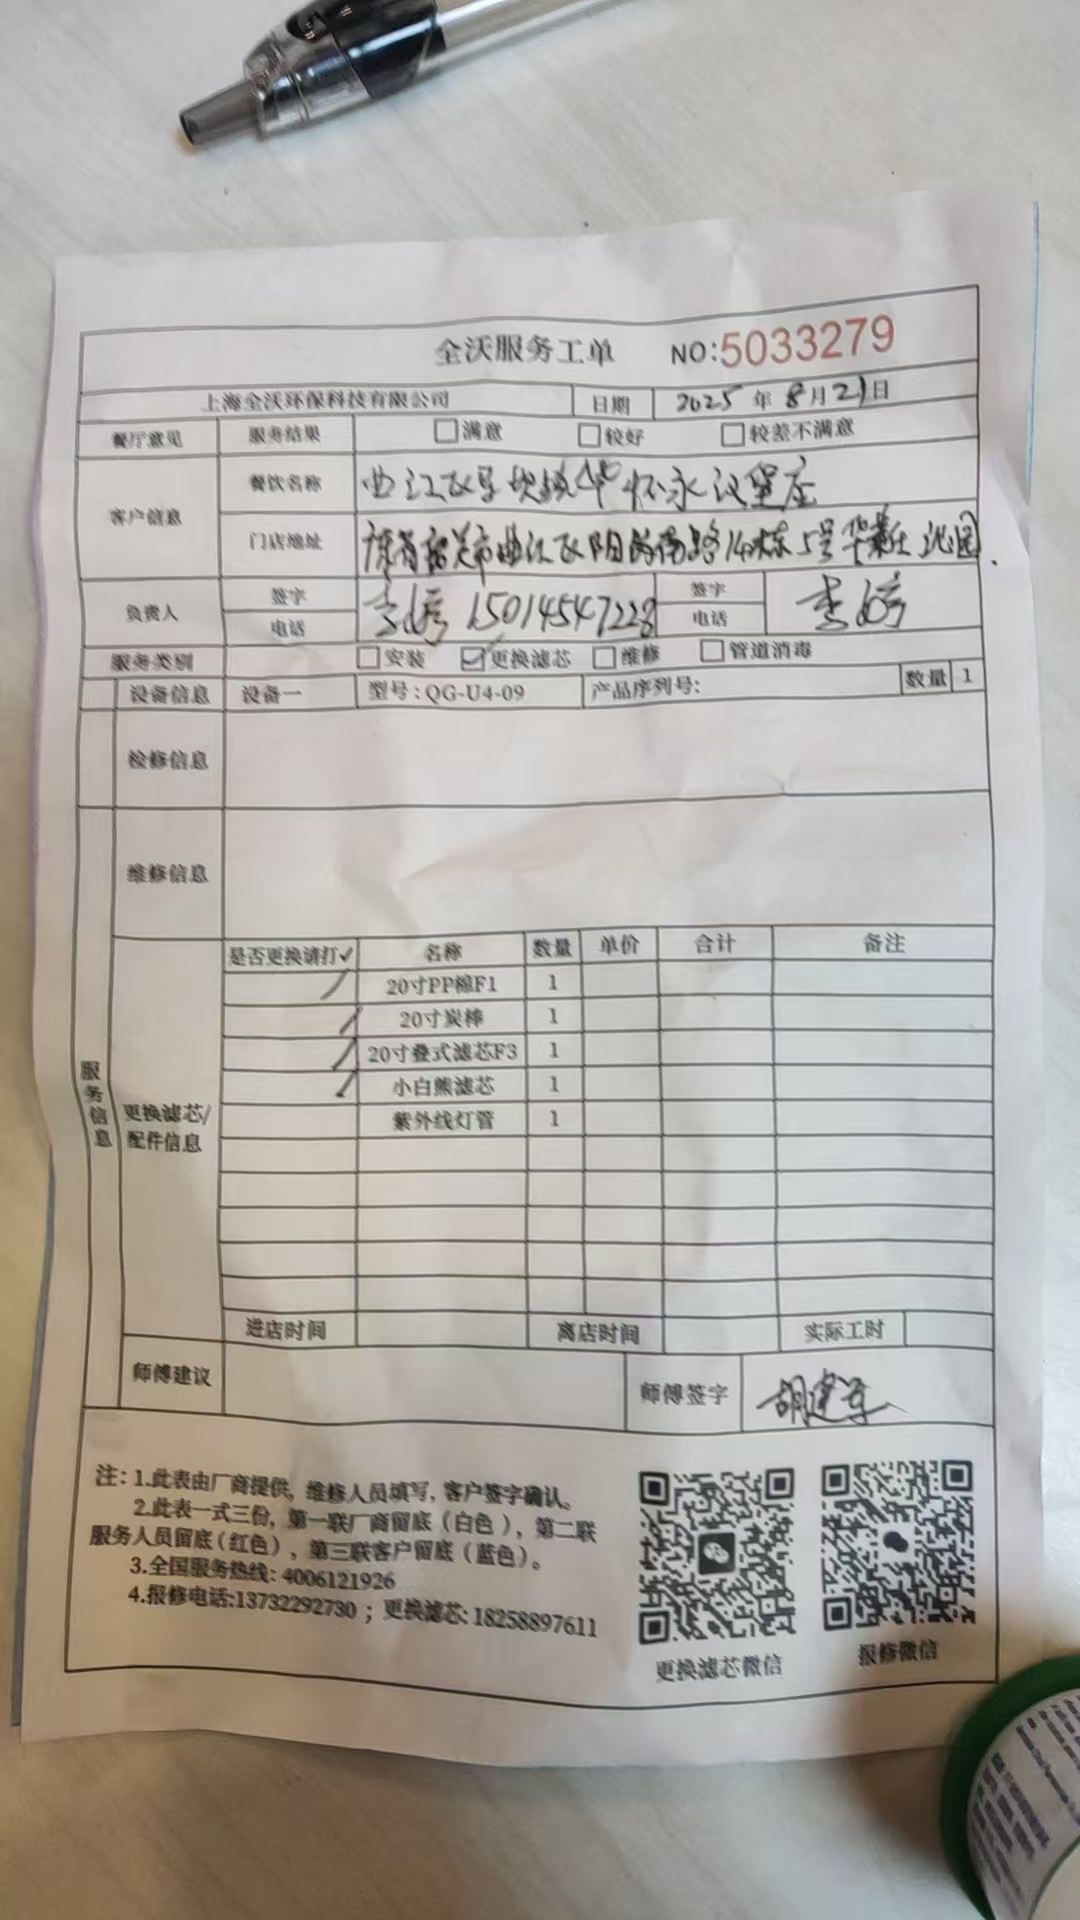 全沃服务工单 NO:5033279
上海全沃环保科技有限公司 日期 2025年8月21日
餐厅意见 服务结果 □满意 □较好 □较差不满意
客户信息 餐饮名称 曲江区马坝镇华怀永汉堡店
门店地址 韶关市曲江区阳岗南路14栋5号华泰
负责人 签字 电话 李 15014547228 签字 电话 李
服务类别 □安装 ☑更换滤芯 □维修 □管道消毒
设备信息 设备一 型号:QG-U4-09 产品序列号: 数量 1
检修信息
维修信息
服务信息
更换滤芯/配件信息
是否更换请打✓ 名称 数量 单价 合计 备注
✓ 20寸PP棉F1 1
✓ 20寸炭棒 1
✓ 20寸叠式滤芯F3 1
✓ 小白熊滤芯 1
紫外线灯管 1
进店时间 离店时间 实际工时
师傅建议 师傅签字 胡建军
注:1.此表由厂商提供,维修人员填写,客户签字确认。
2.此表一式三份,第一联厂商留底(白色),第二联
服务人员留底(红色),第三联客户留底(蓝色)。
3.全国服务热线:4006121926
4.报修电话:13732292730;更换滤芯:18258897611
更换滤芯微信 报修微信